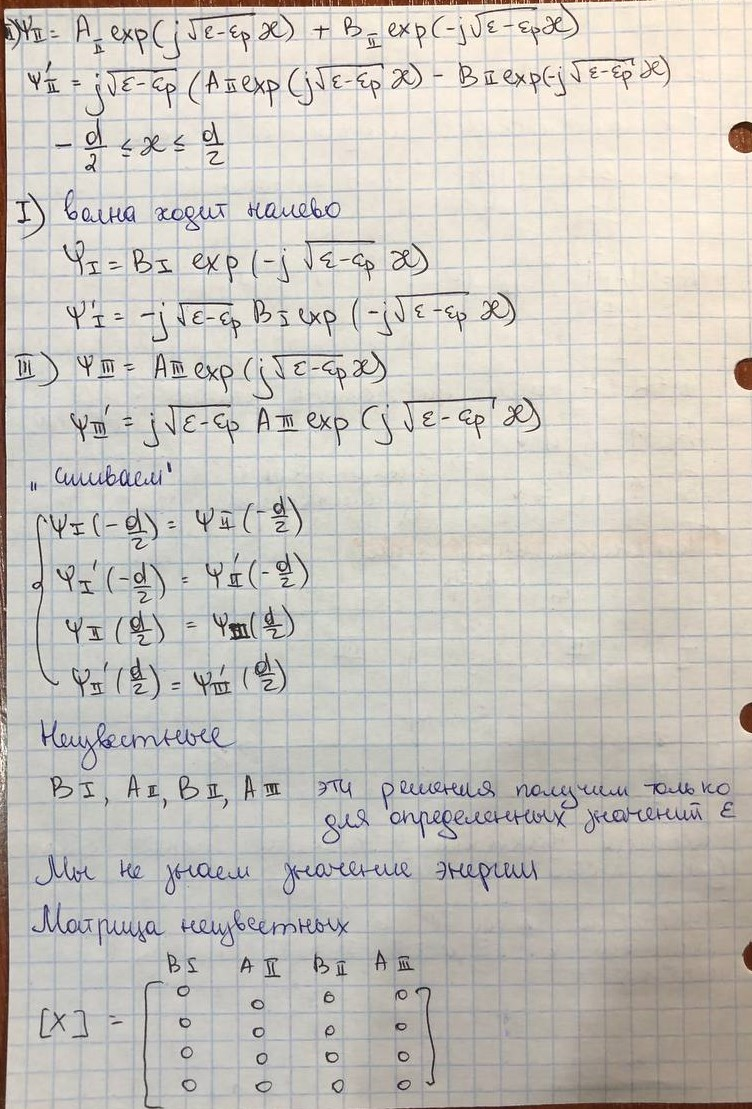 II) Ψ_II = A_II exp(j√(ε-εp) x) + B_II exp(-j√(ε-εp) x)
Ψ'_II = j√(ε-εp) (A_II exp(j√(ε-εp) x) - B_II exp(-j√(ε-εp) x)
- d/2 ≤ x ≤ d/2
I) волна ходит налево
Ψ_I = B_I exp(-j√(ε-εp) x)
Ψ'_I = -j√(ε-εp) B_I exp(-j√(ε-εp) x)
III) Ψ_III = A_III exp(j√(ε-εp) x)
Ψ_III' = j√(ε-εp) A_III exp(j√(ε-εp) x)
„сшиваем"
Ψ_I(-d/2) = Ψ_II(-d/2)
Ψ_I'(-d/2) = Ψ'_II(-d/2)
Ψ_II(d/2) = Ψ_III(d/2)
Ψ_II'(d/2) = Ψ'_III(d/2)
Неизвестные
B_I, A_II, B_II, A_III эти решения получим только
для определенных значений ε
Мы не знаем значение энергии
Матрица неизвестных
B_I A_II B_II A_III
0 0 0 0
[X] = 0 0 0 0
0 0 0 0
0 0 0 0